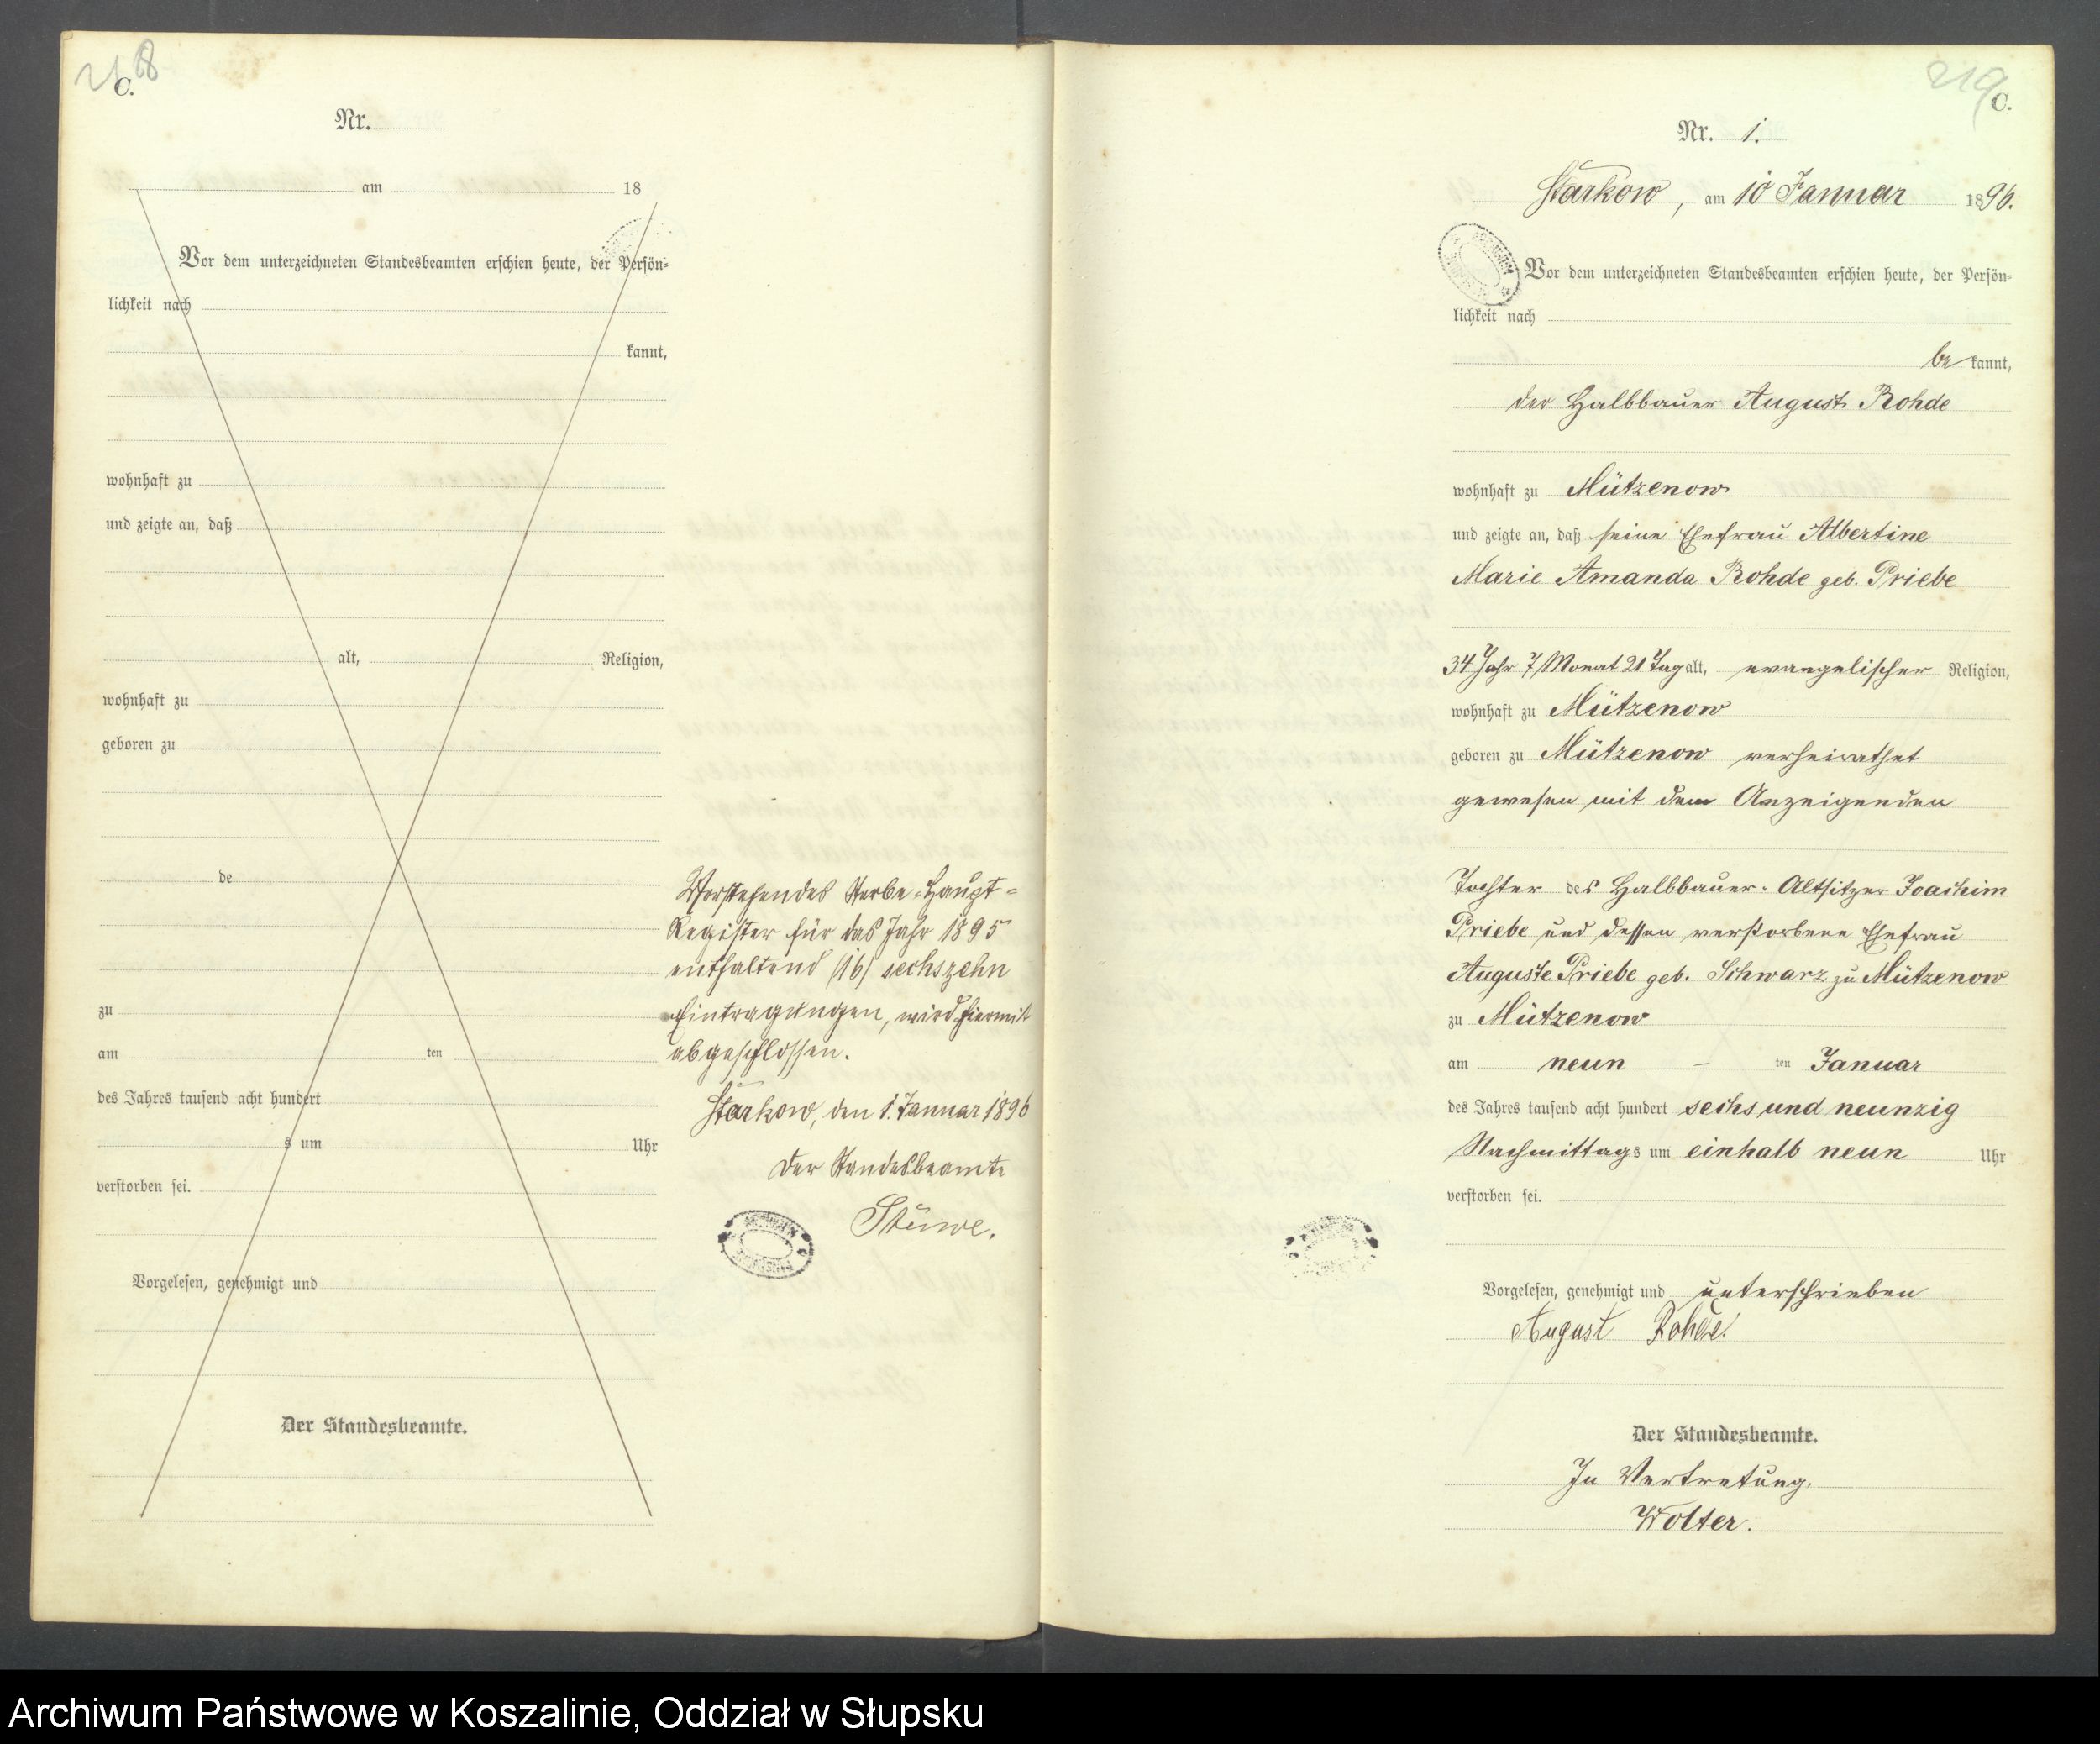 218
C.
Nr.
am 18
Vor dem unterzeichneten Standesbeamten erschien heute, der Persön-
lichkeit nach
kannt,
wohnhaft zu
und zeigte an, daß
alt, Religion,
wohnhaft zu
geboren zu
de
zu
am ten
des Jahres tausend acht hundert
s um Uhr
verstorben sei.
Vorgelesen, genehmigt und
Der Standesbeamte.
Vorstehendes Sterbe-Haupt-
Register für das Jahr 1895
enthaltend (16) sechszehn
Eintragungen, wird hiermit
abgeschlossen.
Starkow, den 1. Januar 1896
Der Standesbeamte
Stüwe.
219
C.
Nr. 1.
Starkow, am 10 Januar 1896.
Vor dem unterzeichneten Standesbeamten erschien heute, der Persön-
lichkeit nach
be kannt,
der Halbbauer August Rohde
wohnhaft zu Mützenow
und zeigte an, daß seine Ehefrau Albertine
Marie Amanda Rohde geb. Priebe
34 Jahr 7 Monat 21 Tag alt, evangelischer Religion,
wohnhaft zu Mützenow
geboren zu Mützenow verheirathet
gewesen mit dem Anzeigenden
Tochter des Halbbauer-Altsitzer Joachim
Priebe und dessen verstorbene Ehefrau
Auguste Priebe geb. Schwarz zu Mützenow
zu Mützenow
am neun – ten Januar
des Jahres tausend acht hundert sechs und neunzig
Nachmittags um einhalb neun Uhr
verstorben sei.
Vorgelesen, genehmigt und unterschrieben
August Rohde.
Der Standesbeamte.
In Vertretung.
Wolter.
Archiwum Państwowe w Koszalinie, Oddział w Słupsku